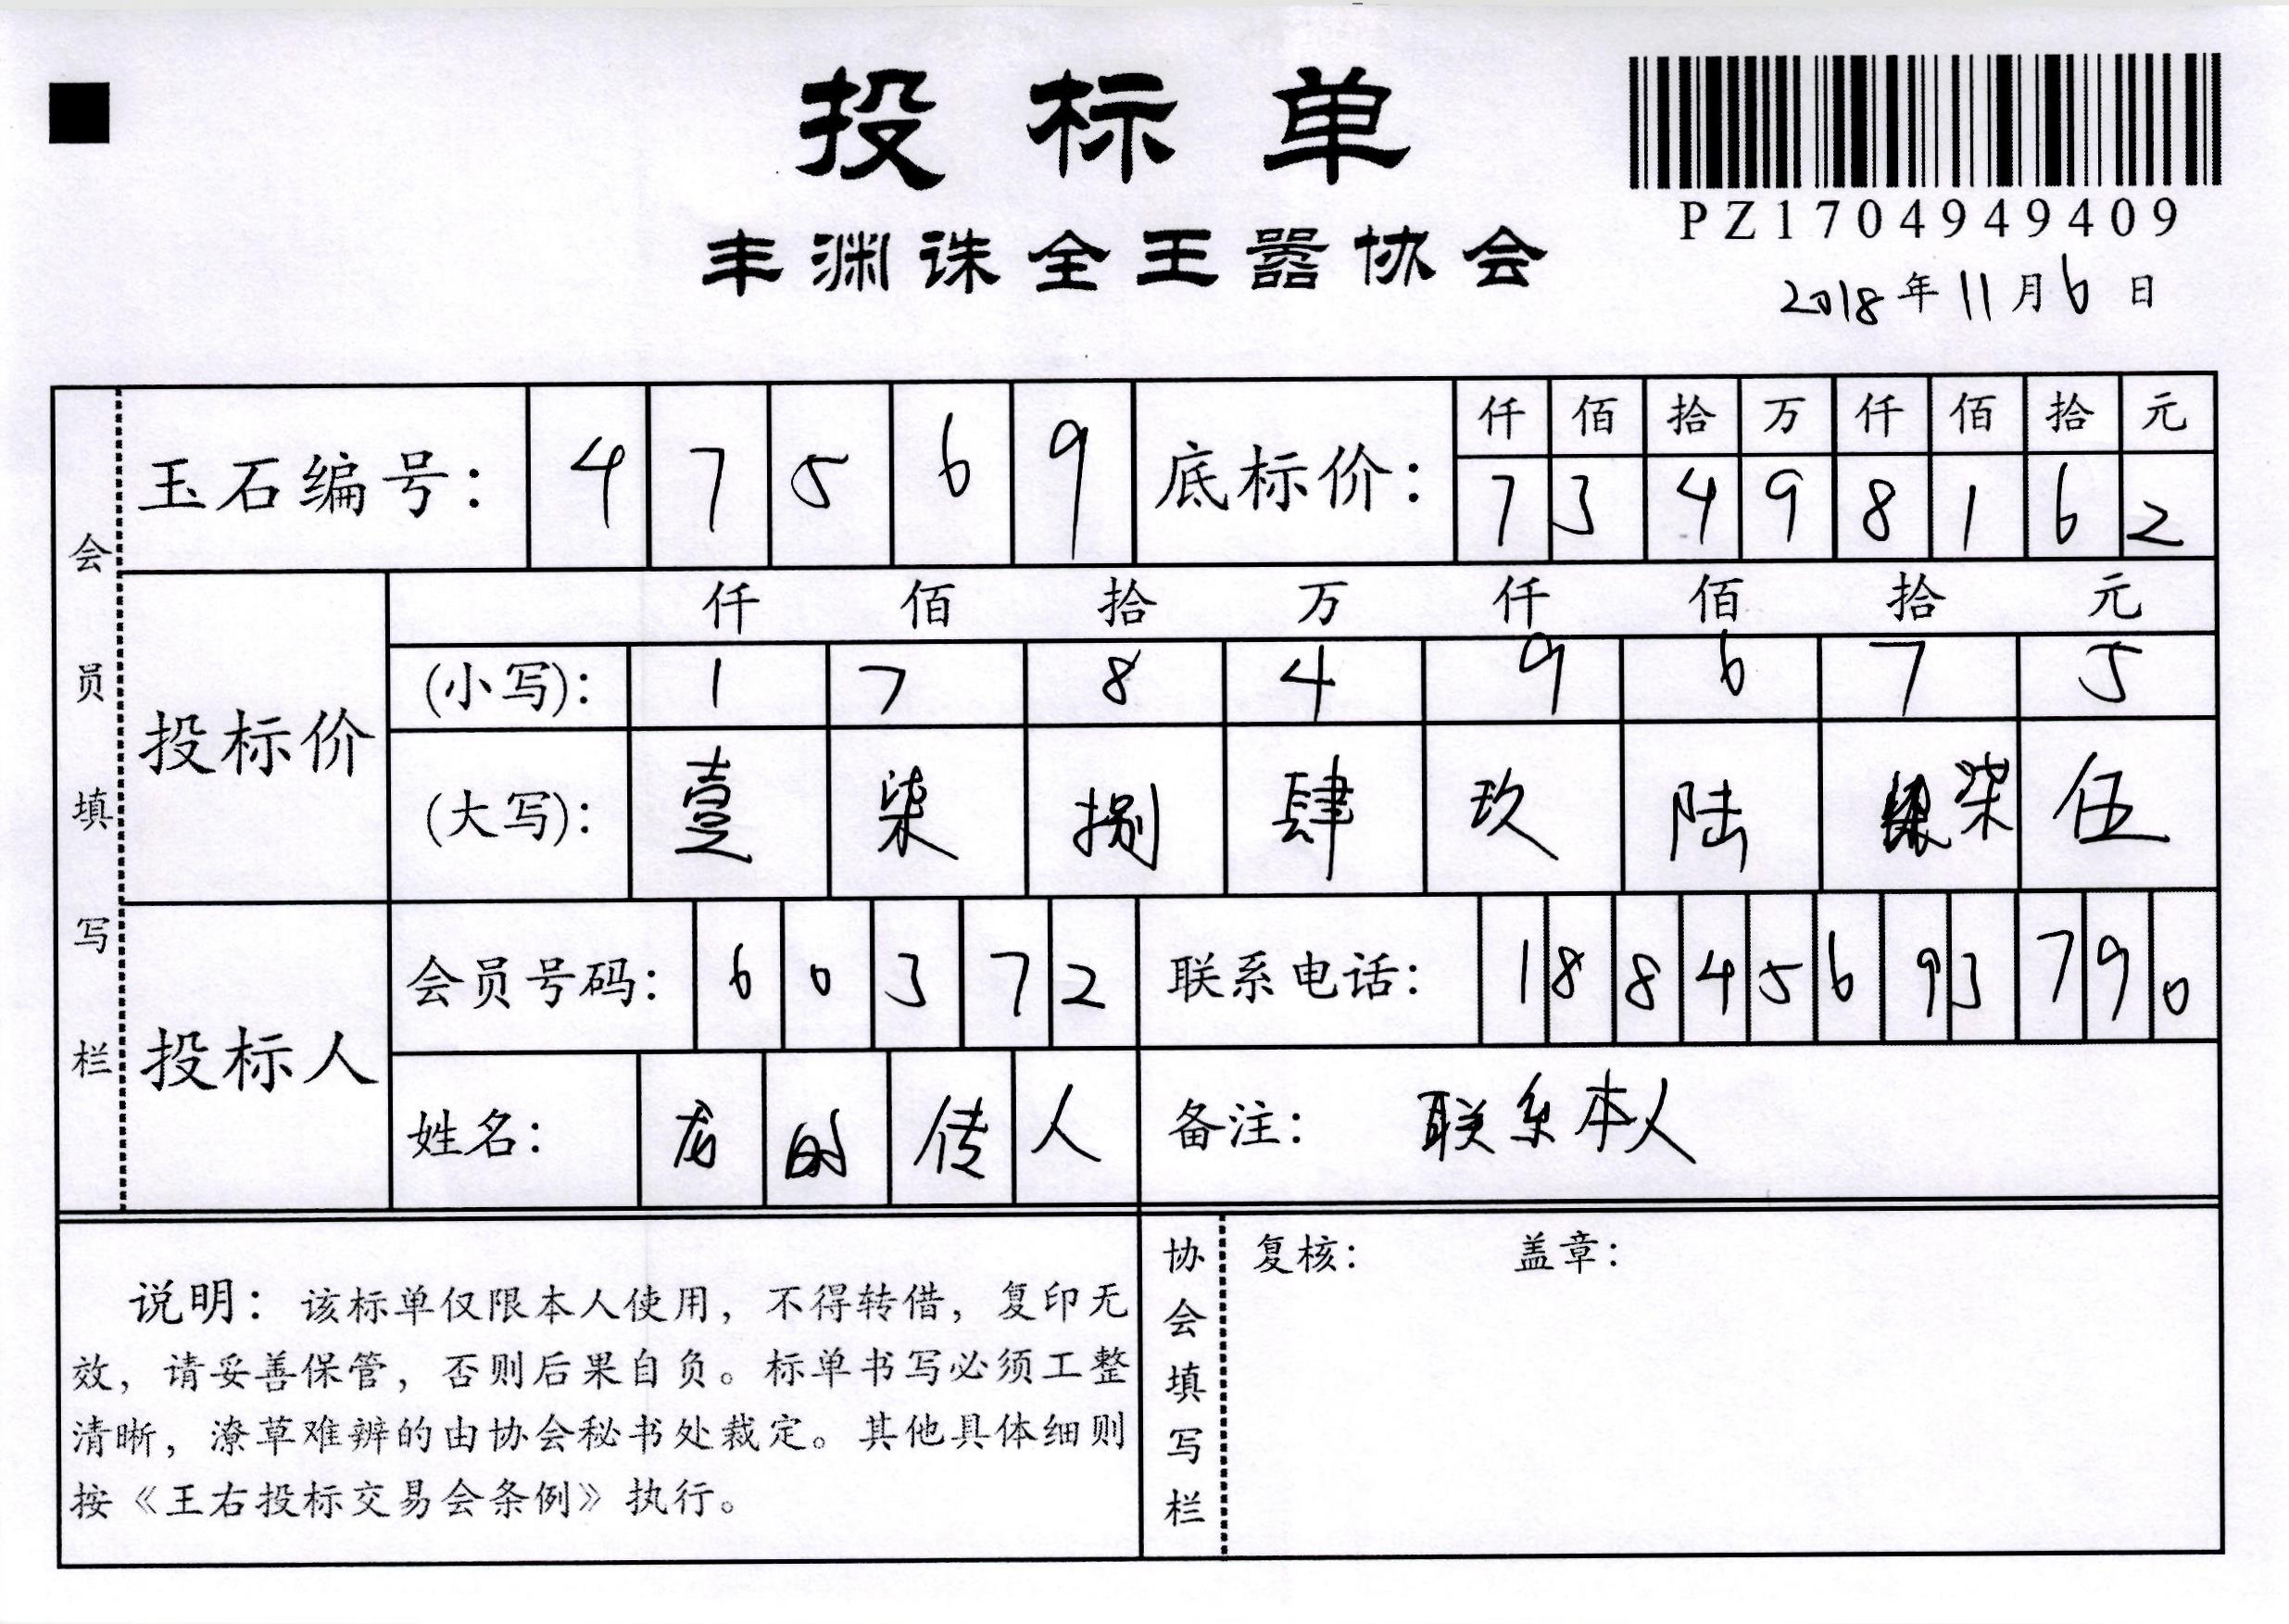 投标单
丰渊诛全王嚣协会
PZ1704949409
2018年11月6日
会员填写栏
玉石编号: 4 7 5 6 9
底标价: 仟 佰 拾 万 仟 佰 拾 元
7 3 4 9 8 1 6 2
投标价
仟 佰 拾 万 仟 佰 拾 元
(小写): 1 7 8 4 9 6 7 5
(大写): 壹 柒 捌 肆 玖 陆 柒 伍
投标人
会员号码: 6 0 3 7 2
联系电话: 1 8 8 4 5 6 9 3 7 9 0
姓名: 龙的传人
备注: 联系本人
说明: 该标单仅限本人使用, 不得转借, 复印无
效, 请妥善保管, 否则后果自负。标单书写必须工整
清晰, 潦草难辨的由协会秘书处裁定。其他具体细则
按《王右投标交易会条例》执行。
协会填写栏
复核: 盖章: